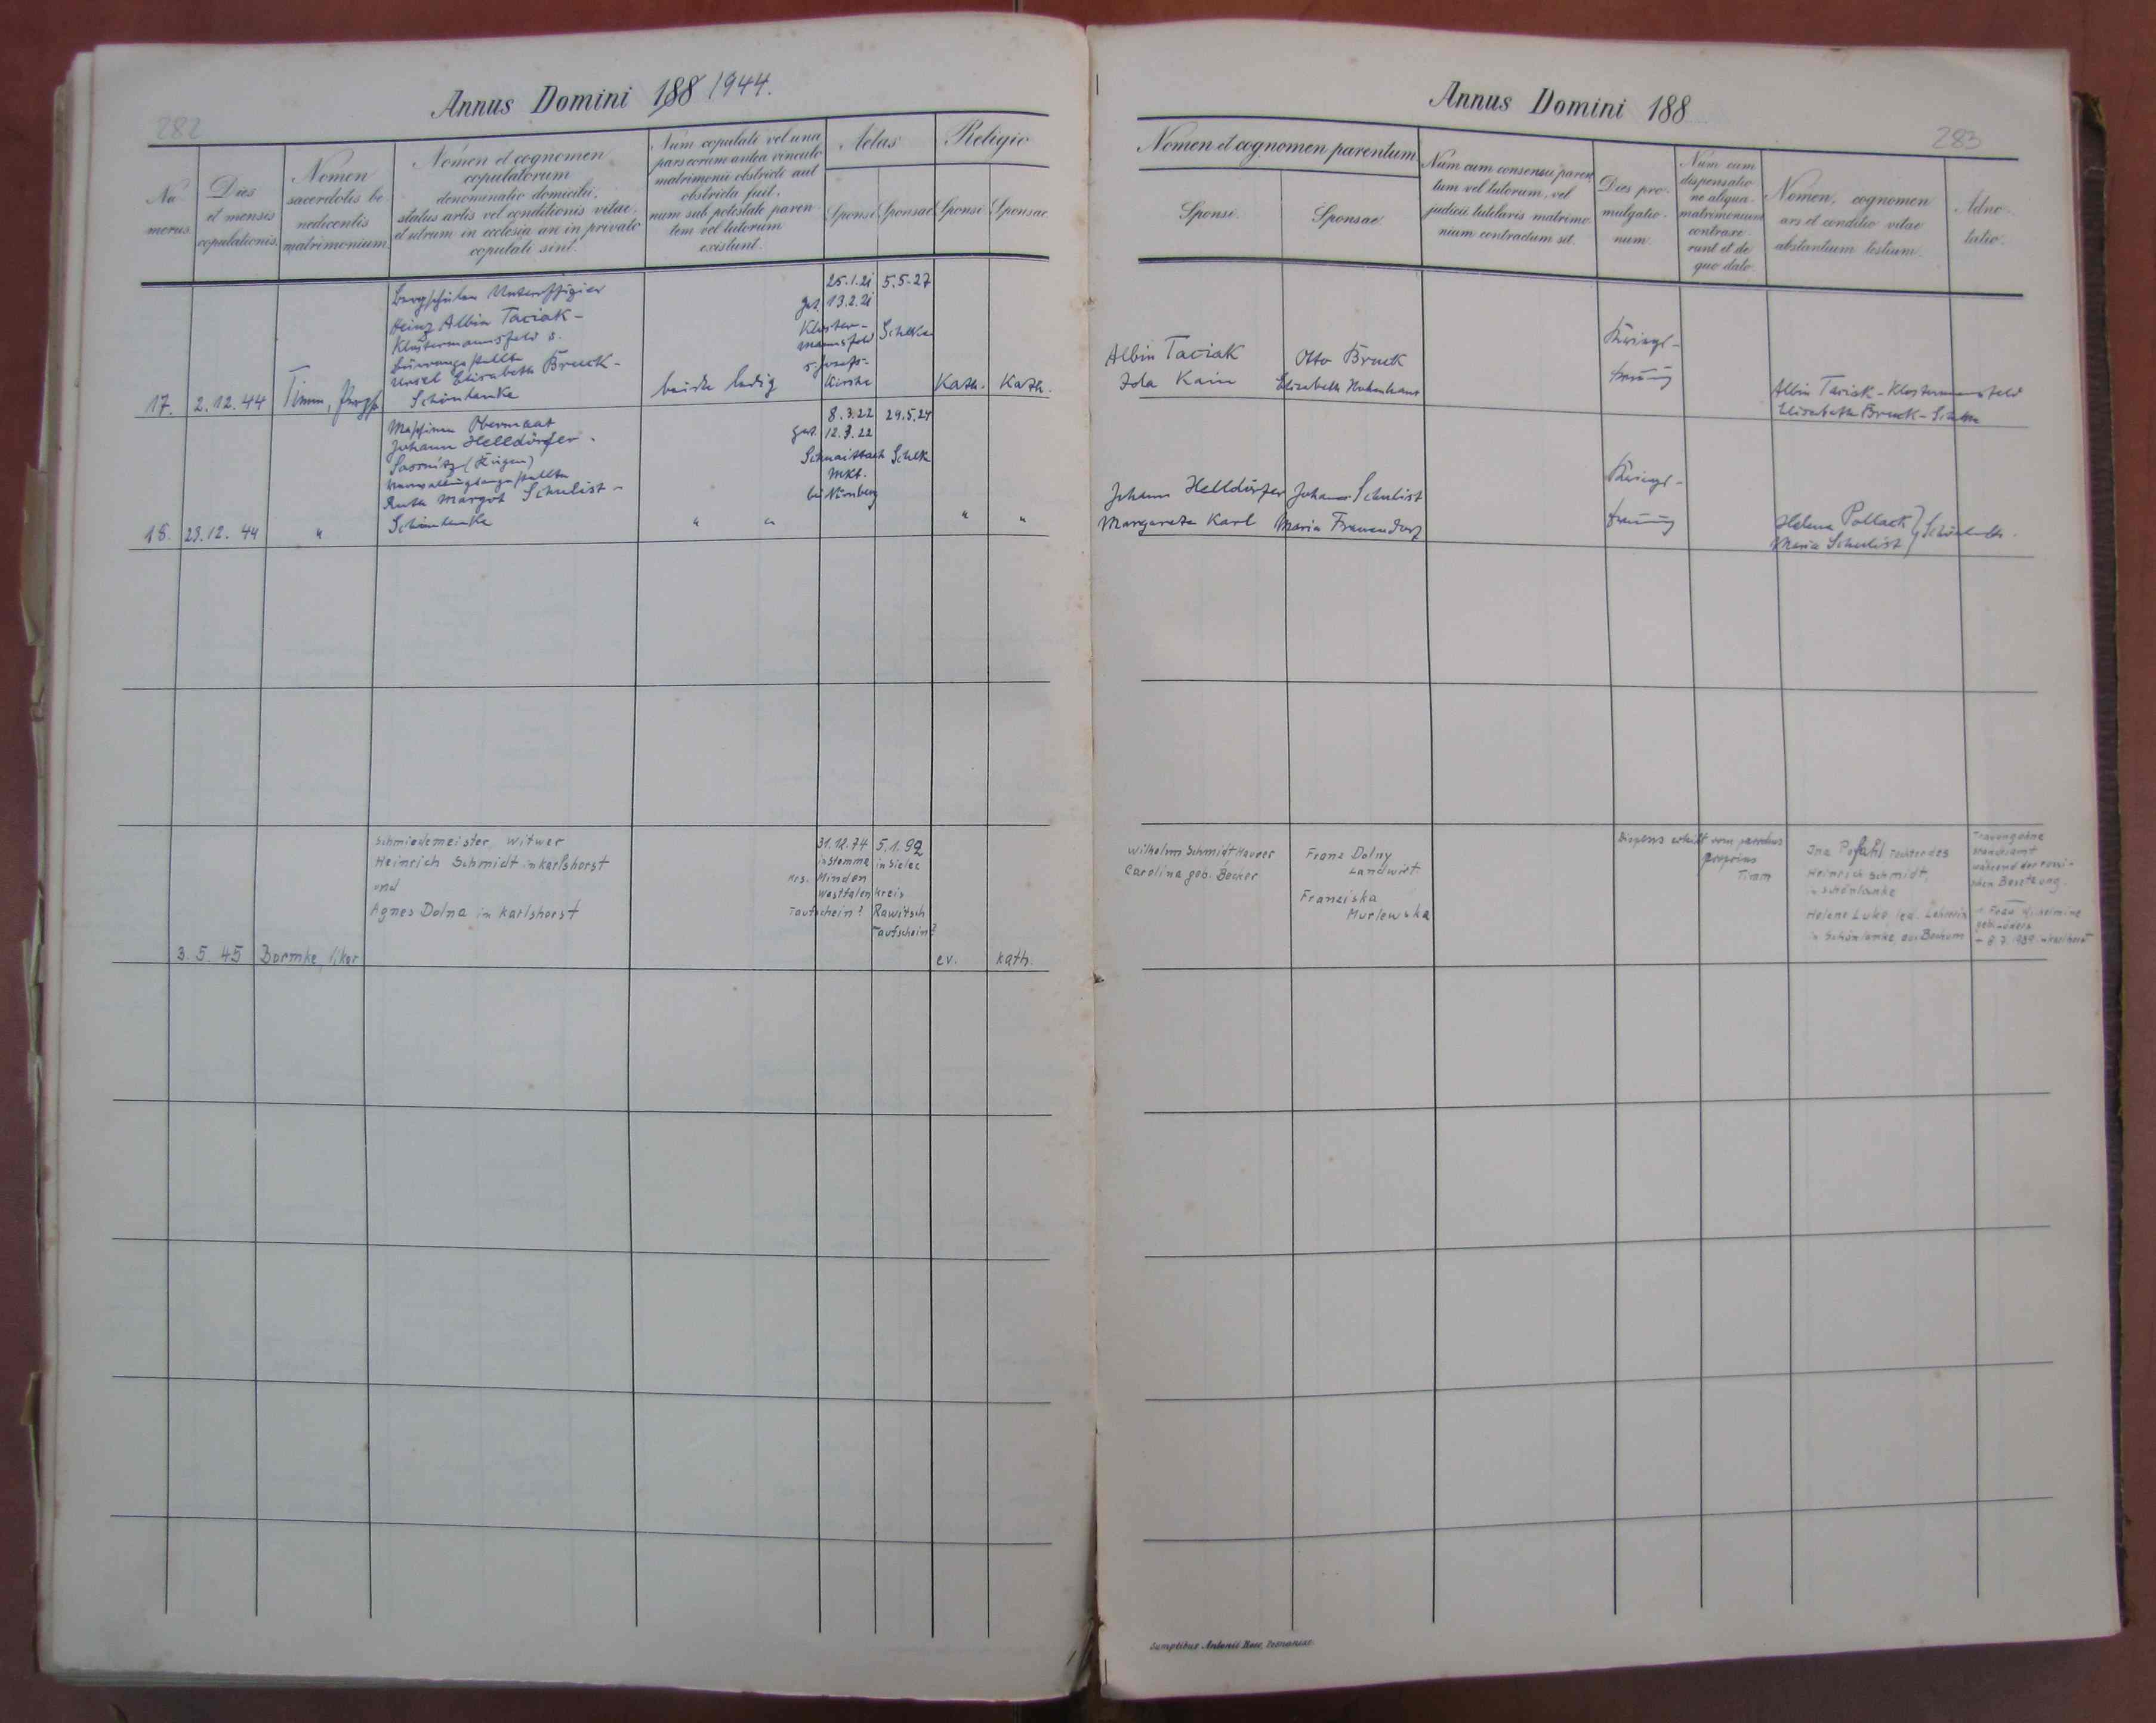 Annus Domini 188 1944.
282
Nu merus.
Dies et mensis copulationis.
Nomen sacerdotis be nedicentis matrimonium.
Nomen et cognomen
copulatorum
denominatio domicilii,
status artis vel conditionis vitae,
et utrum in ecclesia an in privato
copulati sint.
Num copulati vel una
pars eorum antea vinculo
matrimonii obstricti aut
obstricta fuit,
num sub potestate paren
tem vel tutorum
existunt.
Aetas
Sponsi Sponsae
Religio
Sponsi Sponsae
17.
2.12.44
Timm, Propst
Bergschüler Unteroffizier
Heinz Albin Taciak -
Klostermannsfeld u.
Büroangestellte
Ursel Elisabeth Bruck -
Schönlanke
beide ledig
25.1.21
get. 13.2.21
Kloster-
mannsfeld
s. Josefs-
Kirche
5.5.27
Schlke
Kath. Kath.
18.
23.12.44
"
Maschinen Obermaat
Johann Helldörfer -
Sassnitz (Rügen)
Verwaltungsangestellte
Ruth Margot Schulist -
Schönlanke
" "
8.3.22
get. 12.3.22
Schnaittach
Mkt.
bei Nürnberg
29.5.24
Schlk
" "
3.5.45
Bormke, Vikar
Schmiedemeister, Witwer
Heinrich Schmidt in Karlshorst
und
Agnes Dolna in Karlshorst
31.12.74
in Stemme
Krs. Minden
Westfalen
Taufschein?
5.1.92
in Sielec
Kreis
Rawitsch
Taufschein?
ev. kath.
Annus Domini 188
283
Nomen et cognomen parentum
Sponsi. Sponsae
Num cum consensu paren
tum vel tutorum, vel
judicii tutelaris matrimo
nium contractum sit.
Dies pro-
mulgatio-
num.
Num cum
dispensatio
ne aliqua
matrimonium
contraxe
runt et de
quo dato.
Nomen, cognomen
ars et conditio vitae
abstantium testium.
Adno-
tatio.
Albin Taciak
Ida Kain
Otto Bruck
Elisabeth
Kriegs-
trauung
Albin Taciak - Klostermannsfeld
Elisabeth Bruck - Schlke
Johann Helldörfer
Margarete Karl
Johann Schulist
Maria Frauendorf
Kriegs-
trauung
Helene Pollack
Maria Schulist
Schönlanke.
Wilhelm Schmidt Maurer
Carolina geb. Becker
Franz Dolny
Landwirt
Franziska
Murlewska
Dispens erteilt vom parochus
proprius
Timm
Ina Pofahl Tochter des
Heinrich Schmidt,
in Schönlanke
Helene Luke led. Lehrerin
in Schönlanke aus Bochum
Trauung ohne
Standesamt
während der russi-
schen Besetzung.
1. Frau Wilhelmine
+ 8.7.1939 in Karlshorst
Sumptibus Antonii Rose, Posnaniae.